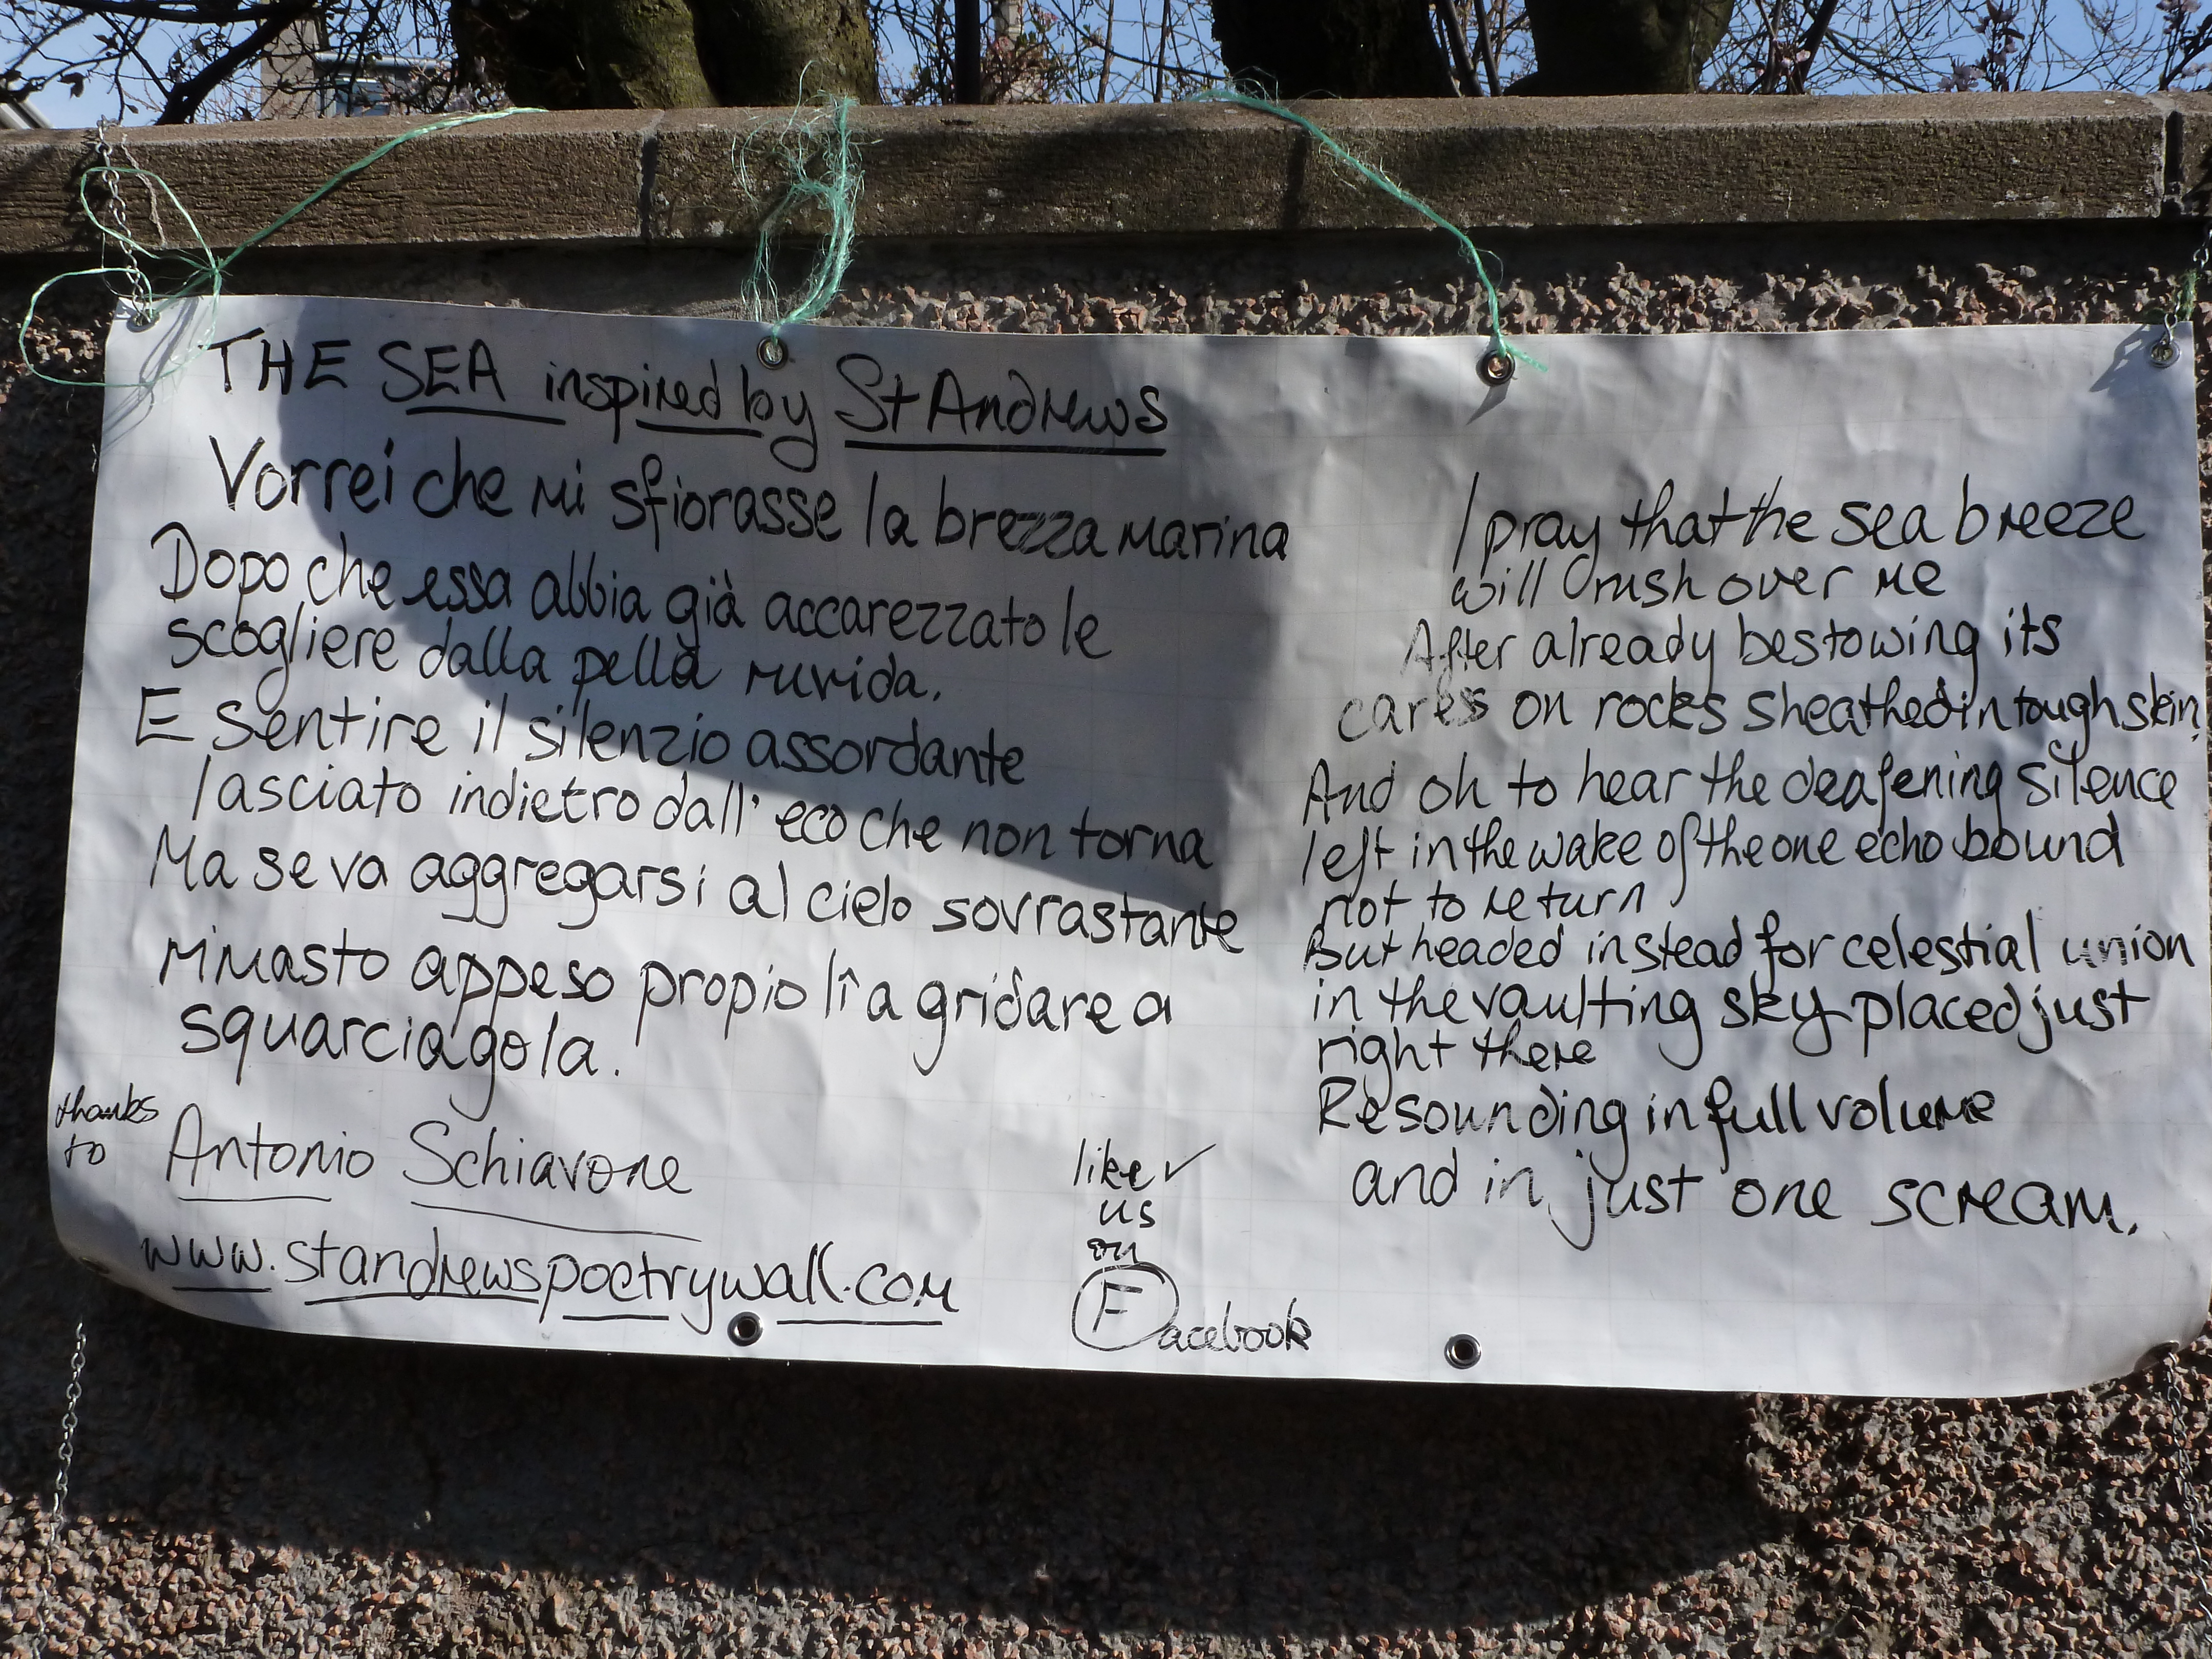 THE SEA inspired by St Andrews
Vorrei che mi sfiorasse la brezza marina
Dopo che essa abbia già accarezzato le
scogliere dalla pella ruvida.
E sentire il silenzio assordante
lasciato indietro dall' eco che non torna
Ma se va aggregarsi al cielo sovrastante
rimasto appeso propio lî a gridare a
squarciagola.
thanks
to
Antonio Schiavone
www.standrewspoetrywall.com
like
us
on
Facebook
I pray that the sea breeze
will rush over me
After already bestowing its
cares on rocks sheathed in tough skin,
And oh to hear the deafening silence
left in the wake of the one echo bound
not to return
But headed instead for celestial union
in the vaulting sky placed just
right there
Resounding in full volume
and in just one scream.